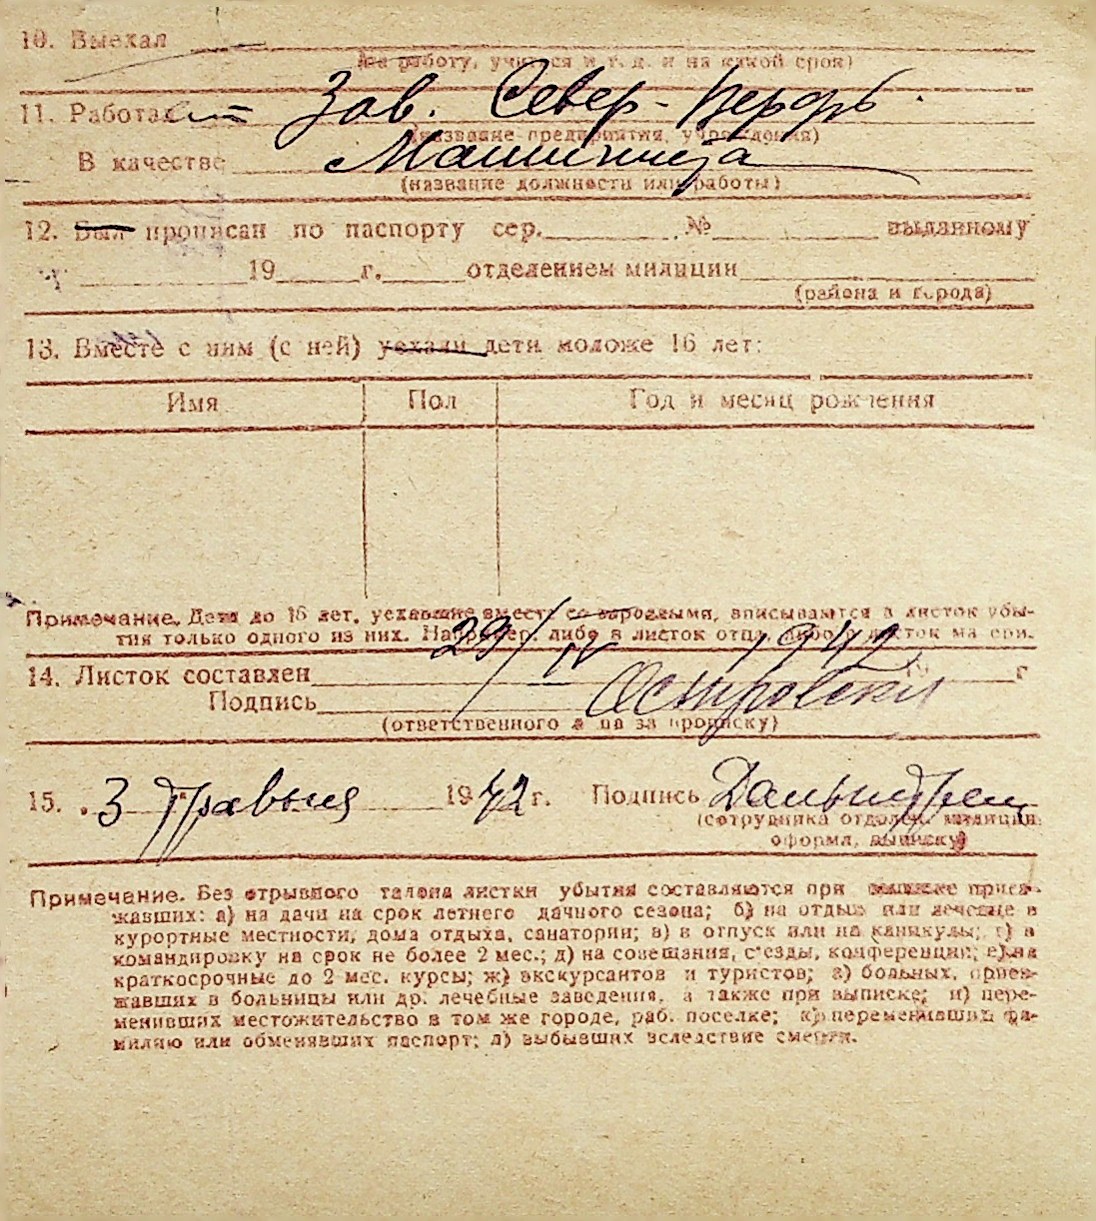 10. Выехал
(на работу, учиться и т. д. и на какой срок)
11. Работает Зав. Север-
(название предприятия, учреждения)
В качестве
(название должности или работы)
12. Был прописан по паспорту сер. № выданному
19 г. отделением милиции
(района и города)
13. Вместе с ним (с ней) уехали дети моложе 16 лет:
Имя Пол Год и месяц рождения
Примечание. Дети до 16 лет, уехавшие вместе со взрослыми, вписываются в листок убы-
тия только одного из них. Например, либо в листок отца, либо в листок матери.
14. Листок составлен 29/IV 1942 г
Подпись
(ответственного лица за прописку)
15. 3 травня 1942 г. Подпись
(сотрудника отделен. милиции,
оформл. выписку)
Примечание. Без отрывного талона листки убытия составляются при выписке приез-
жавших: а) на дачи на срок летнего дачного сезона; б) на отдых или лечение в
курортные местности, дома отдыха, санатории; в) в отпуск или на каникулы; г) в
командировку на срок не более 2 мес.; д) на совещания, съезды, конференции; е) на
краткосрочные до 2 мес. курсы; ж) экскурсантов и туристов; з) больных, приез-
жавших в больницы или др. лечебные заведения, а также при выписке; и) пере-
менивших местожительство в том же городе, раб. поселке; к) переменивших фа-
милию или обменявших паспорт; л) выбывших вследствие смерти.